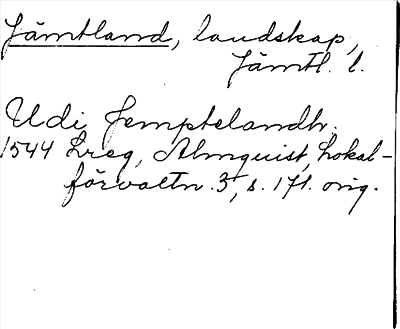 Jämtland, landskap,
Jämtl. l.
Udi Jemptelandh.
1544 Lreg, Almquist, Lokal-
förvaltn. 3, s. 171. orig.